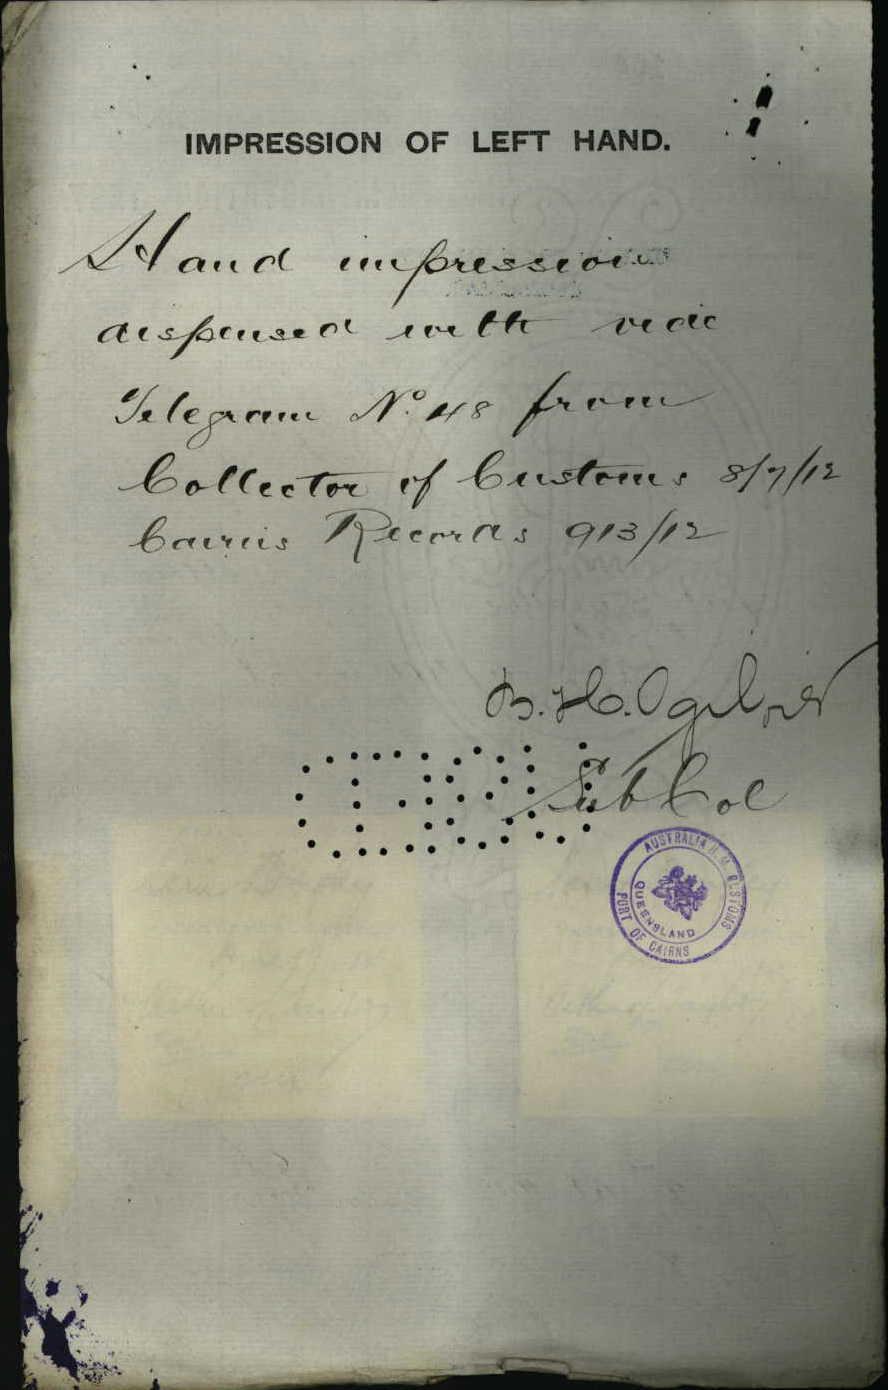 IMPRESSION OF LEFT HAND.
Hand impression
dispensed with vide
Telegram No. 48 from
Collector of Customs 8/7/12
Cairns Records 913/12
B. H. Ogilvie
Sub Col
AUSTRALIA H.M. CUSTOMS
QUEENSLAND
PORT OF CAIRNS